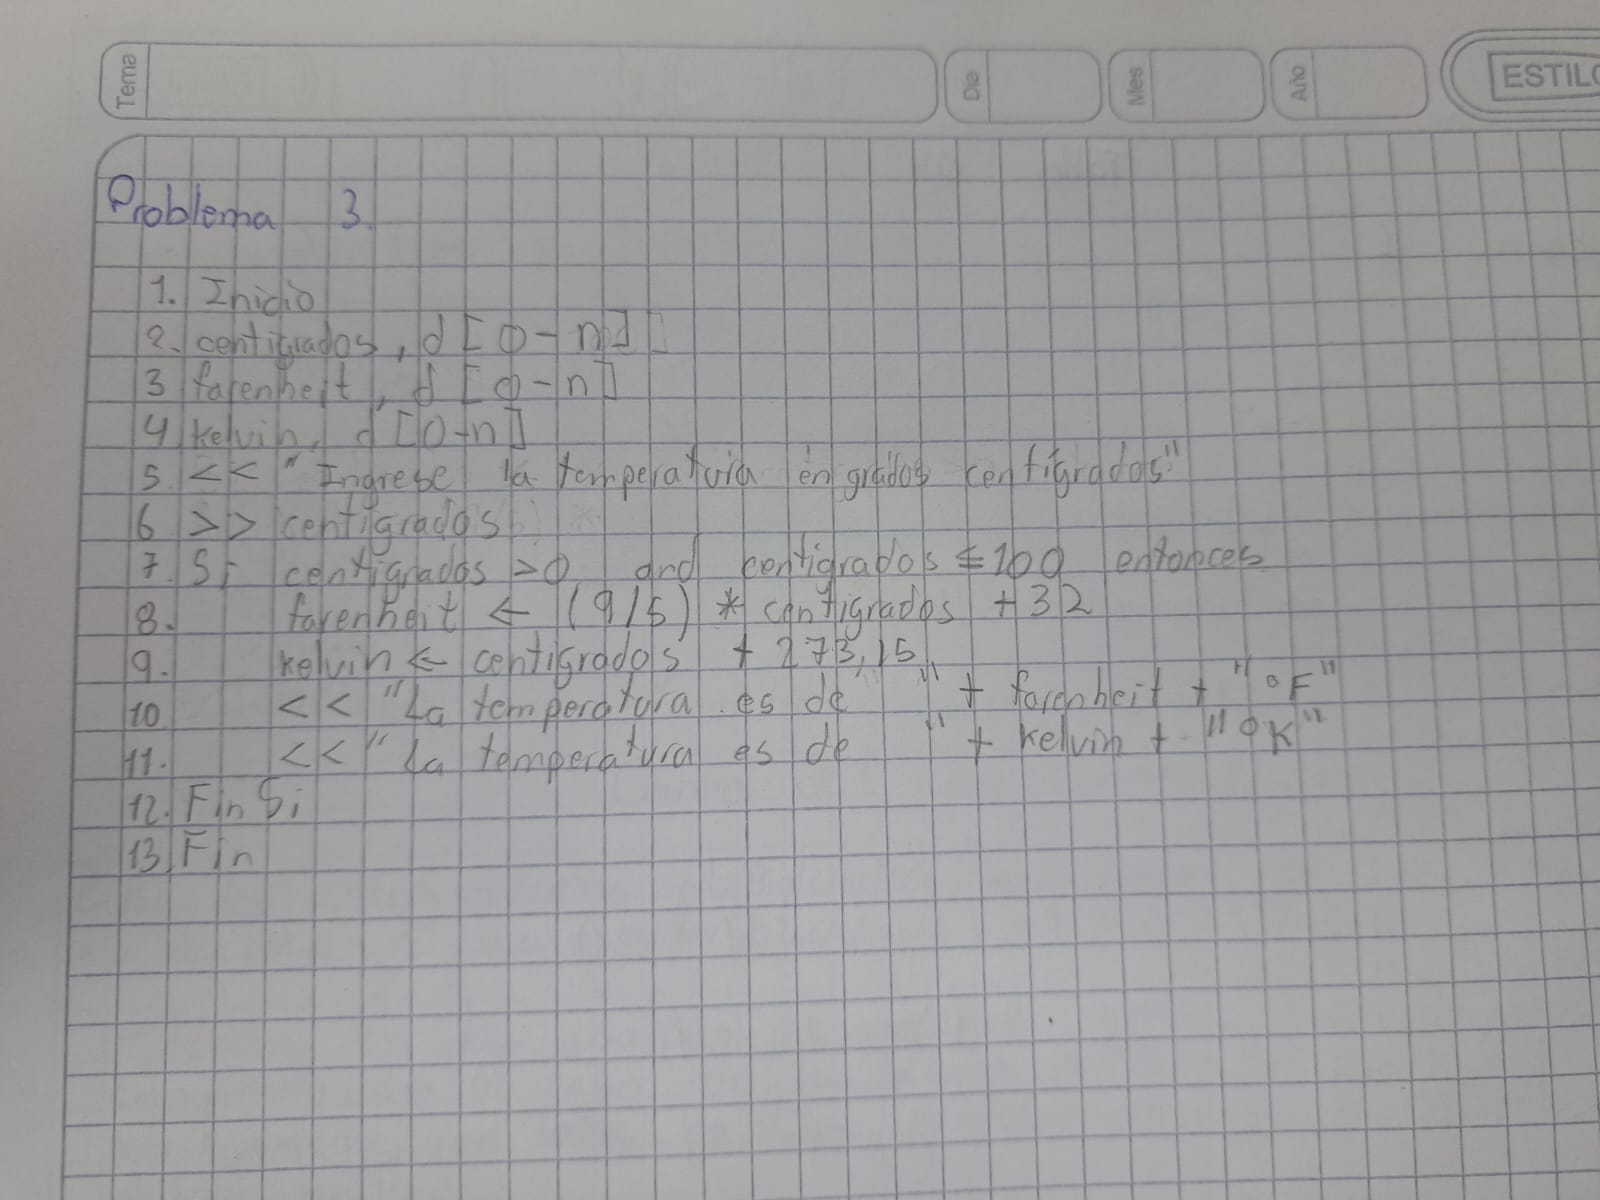 Tema Dia Mes Año ESTILO
Problema 3.
1. Inicio
2. centigrados, d [0-n]
3 farenheit, d [0-n]
4 kelvin, d [0-n]
5. << "Ingrese la temperatura en grados centigrados"
6 >> centigrados
7. Si centigrados >0 and centigrados ≤100 entonces
8. farenheit ← (9/5) * centigrados +32
9. kelvin ← centigrados + 273,15
10 << "La temperatura es de " + farenheit + "°F"
11. << "La temperatura es de " + kelvin + "°K"
12. Fin Si
13. Fin